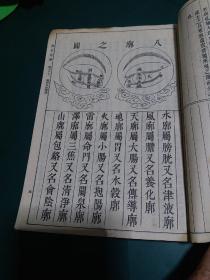 八廓之圖
水廓屬膀胱又名津液廓
風廓屬膽又名養化廓
天廓屬大腸又名傳導廓
地廓屬胃又名水穀廓
火廓屬小腸又名抱陽廓
雷廓屬命門又名關泉廓
澤廓屬三焦又名清淨廓
山廓屬包絡又名會陰廓